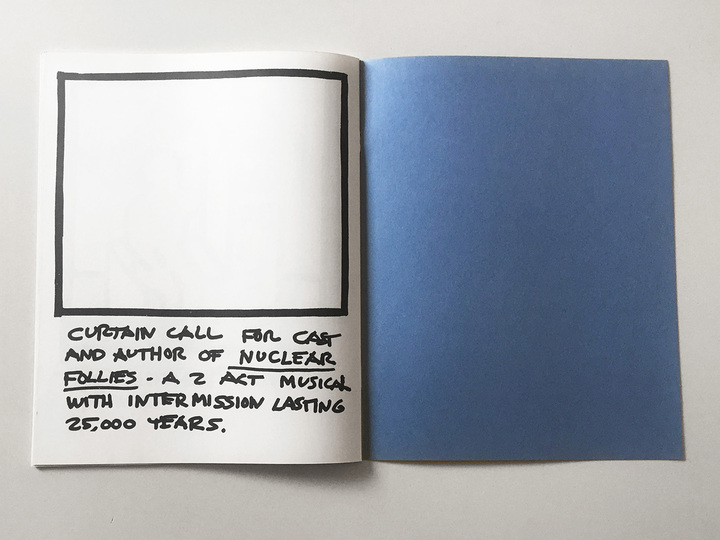 CURTAIN CALL FOR CAST
AND AUTHOR OF NUCLEAR
FOLLIES - A 2 ACT MUSICAL
WITH INTERMISSION LASTING
25,000 YEARS.